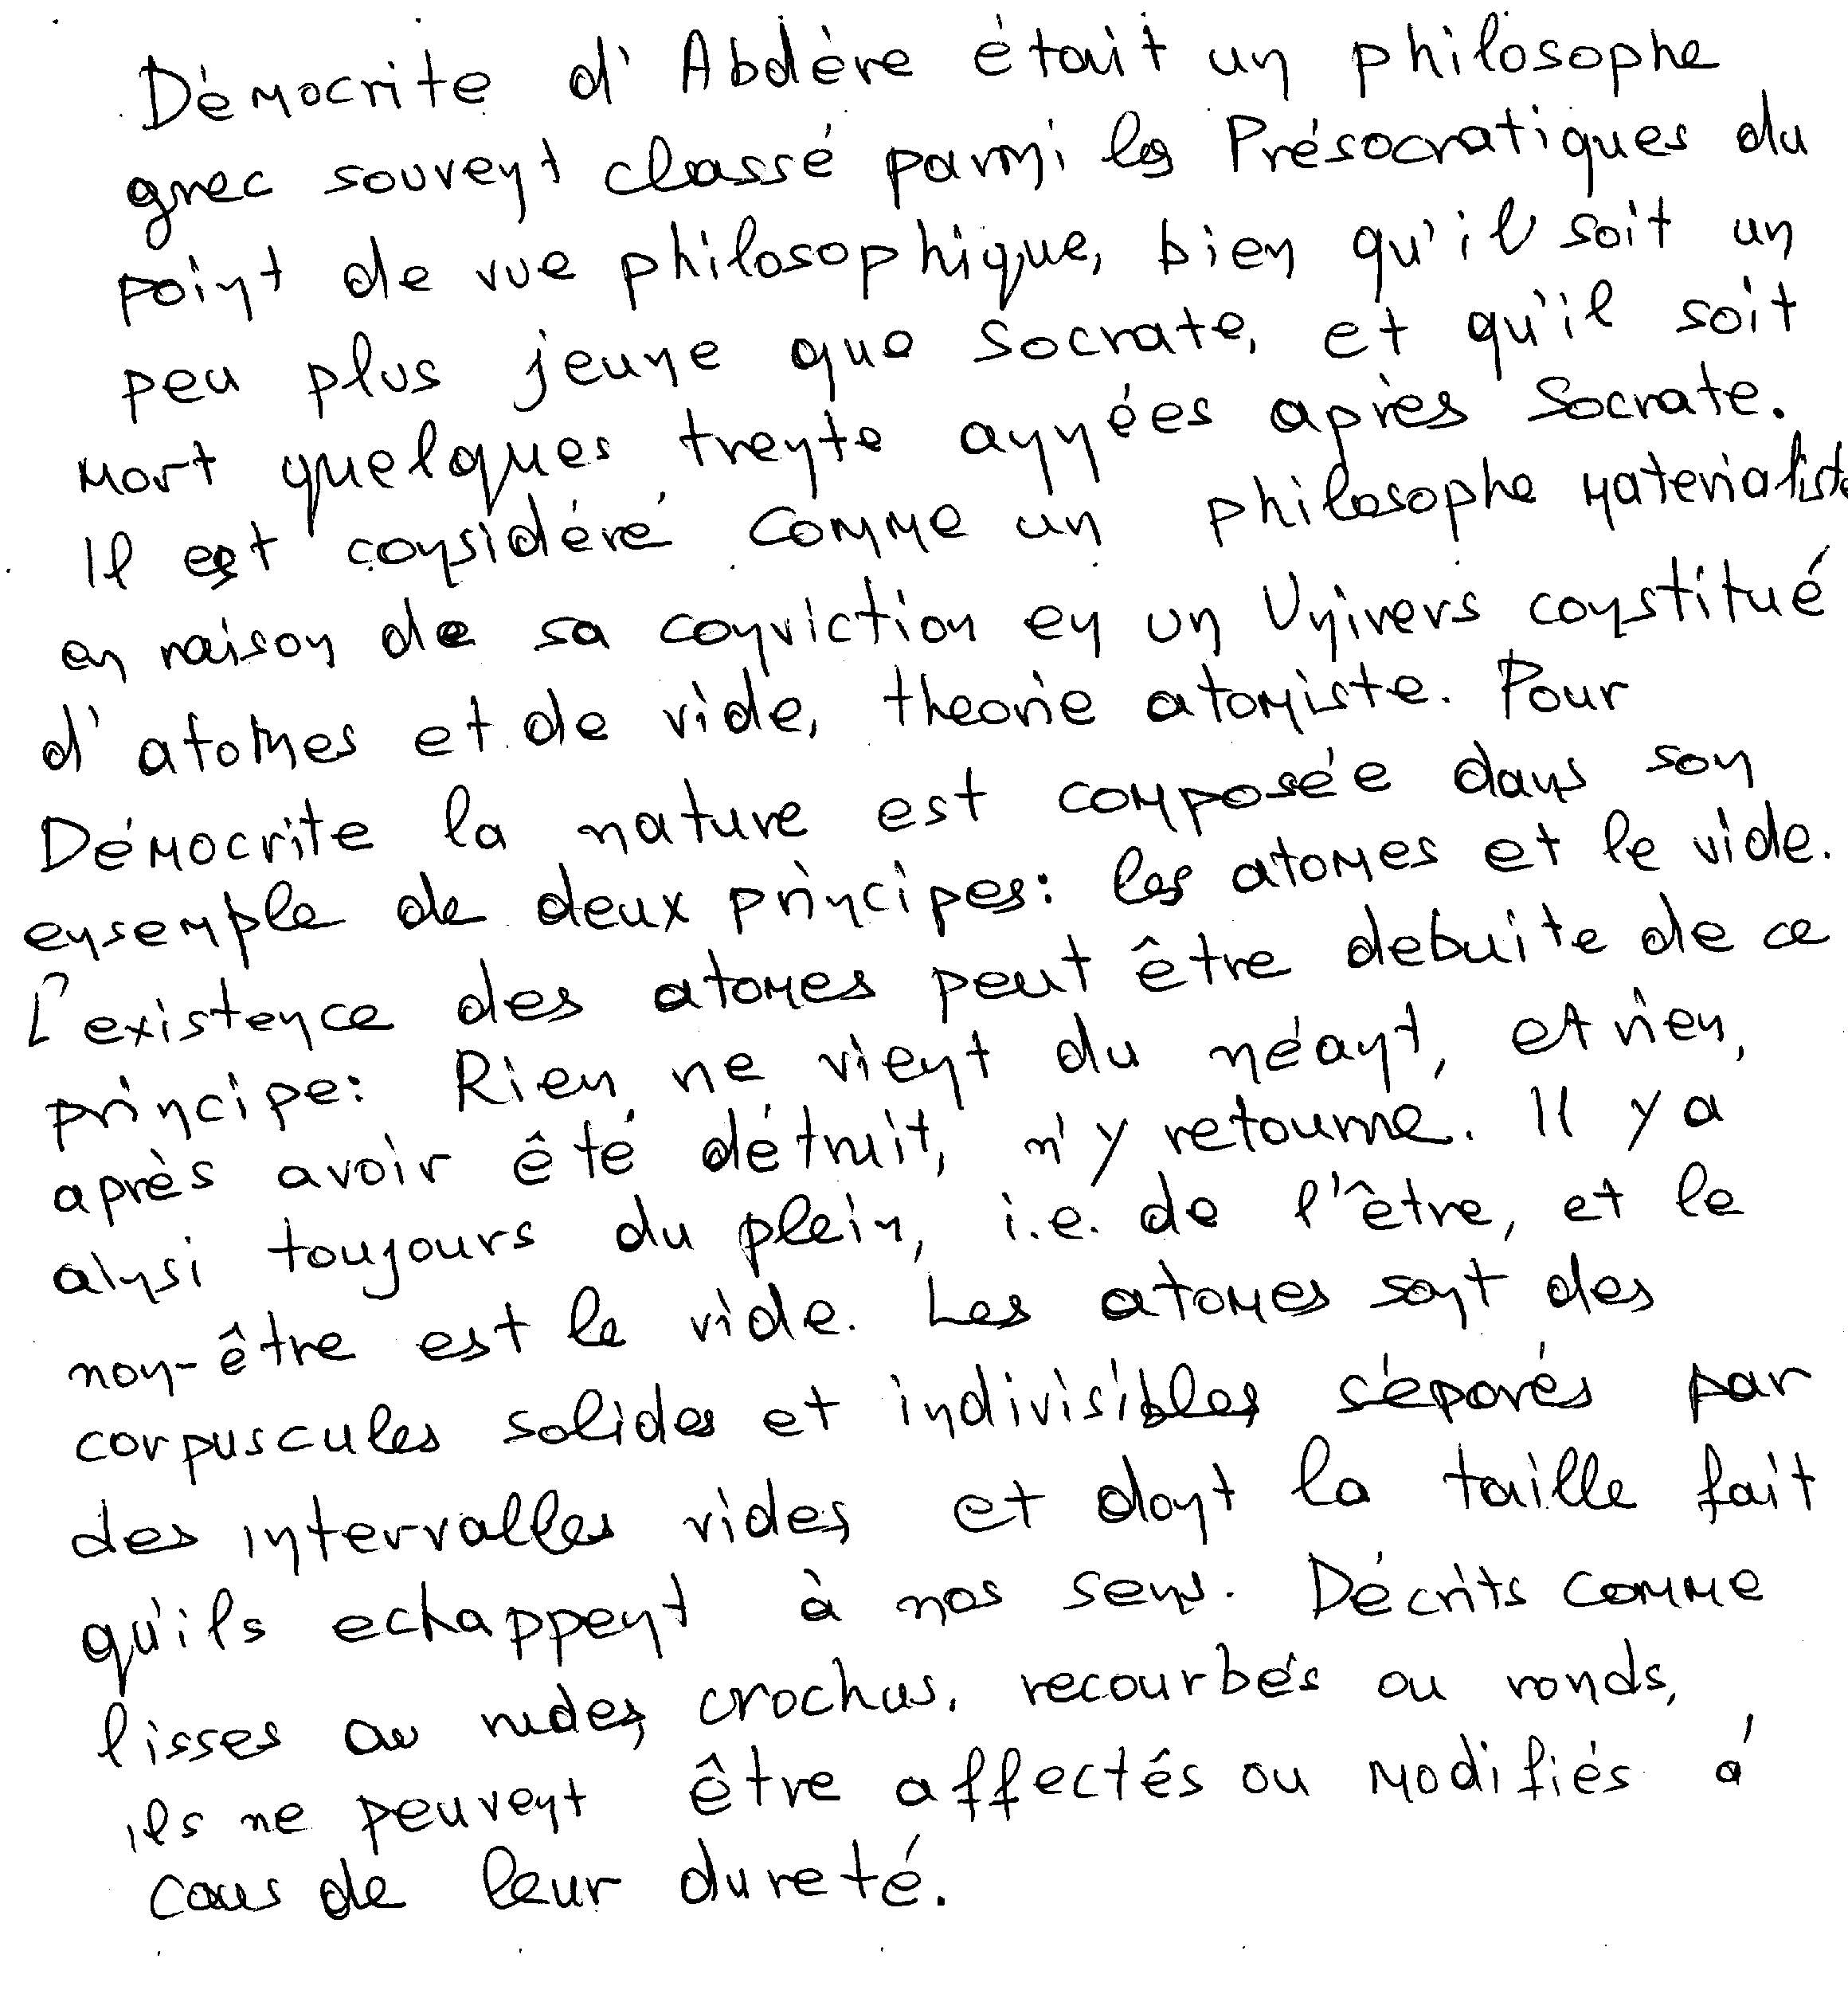 Démocrite d'Abdère était un philosophe
grec souvent classé parmi les Présocratiques du
point de vue philosophique, bien qu'il soit un
peu plus jeune que Socrate, et qu'il soit
mort quelques trente années après Socrate.
Il est considéré comme un philosophe materialiste
en raison de sa conviction en un Univers constitué
d'atomes et de vide, theorie atomiste. Pour
Démocrite la nature est composée dans son
ensemple de deux principes: les atomes et le vide.
L'existence des atomes peut être debuite de ce
principe: Rien ne vient du néant, et rien,
après avoir êté détruit, n'y retourne. Il y a
ainsi toujours du plein, i.e. de l'être, et le
non-être est le vide. Les atomes sont des
corpuscules solides et indivisibles séparés par
des intervalles vides et dont la taille fait
qu'ils echappent à nos sens. Décrits comme
lisses ou rudes, crochus, recourbés ou ronds,
ils ne peuvent être affectés ou modifiés á
caus de leur dureté.